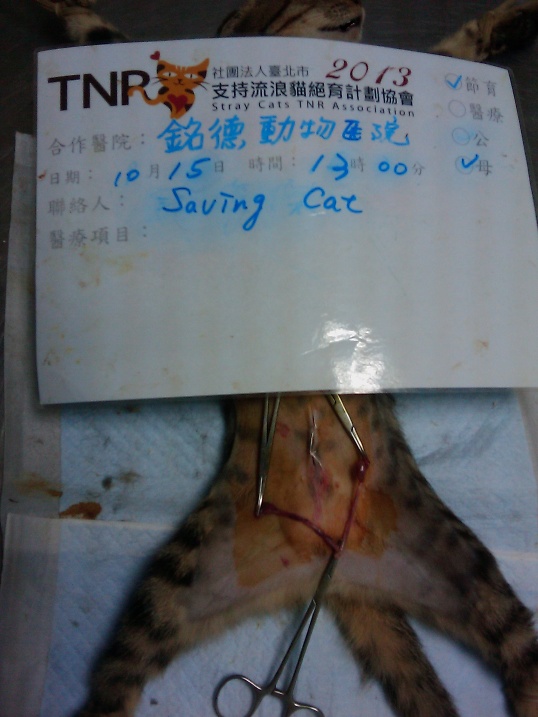 TNR 社團法人臺北市 2013
支持流浪貓絕育計劃協會
Stray Cats TNR Association
✓節育
○醫療
○公
✓母
合作醫院：銘德動物醫院
日期：10月15日 時間：13時00分
聯絡人：Saving Cat
醫療項目：